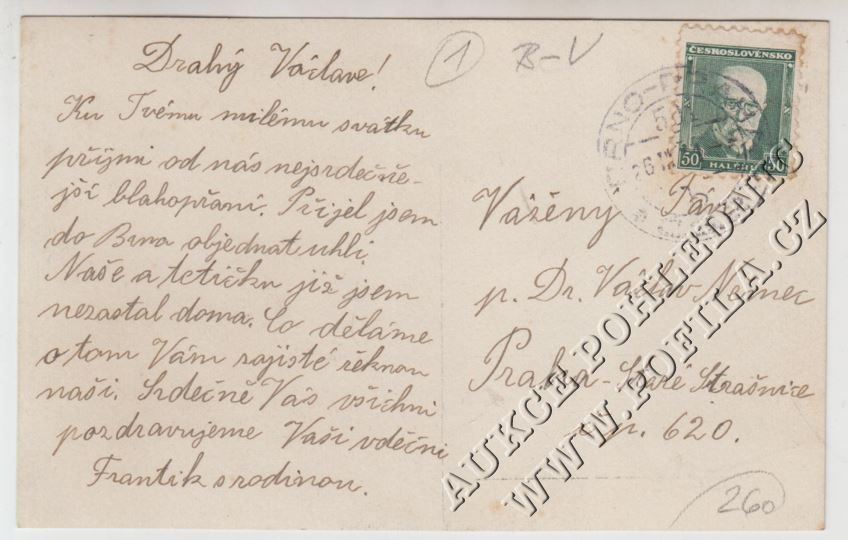 Drahý Václave!
Ku Tvému milému svátku
přijmi od nás nejsrdečně-
jší blahopřání. Přijel jsem
do Brna objednat uhlí.
Naše a tetičku již jsem
nezastal doma. Co děláme
o tom Vám zajisté řeknou
naši. Srdečně Vás všichni
pozdravujeme Vaši vděční
Frantík s rodinou.
1
B-V
ČESKOSLOVENSKO
50 HALÉŘŮ 50
BRNO
Vážený Pán
p. Dr. Václav Němec
Praha - Staré Strašnice
čp. 620.
260
AUKCE POHLEDNIC
WWW.POFILA.CZ